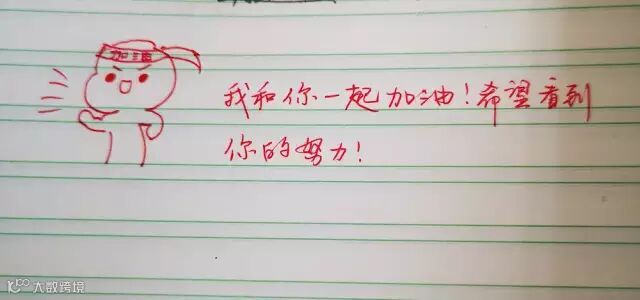 加油
我和你一起加油！希望看到
你的努力！
大数跨境